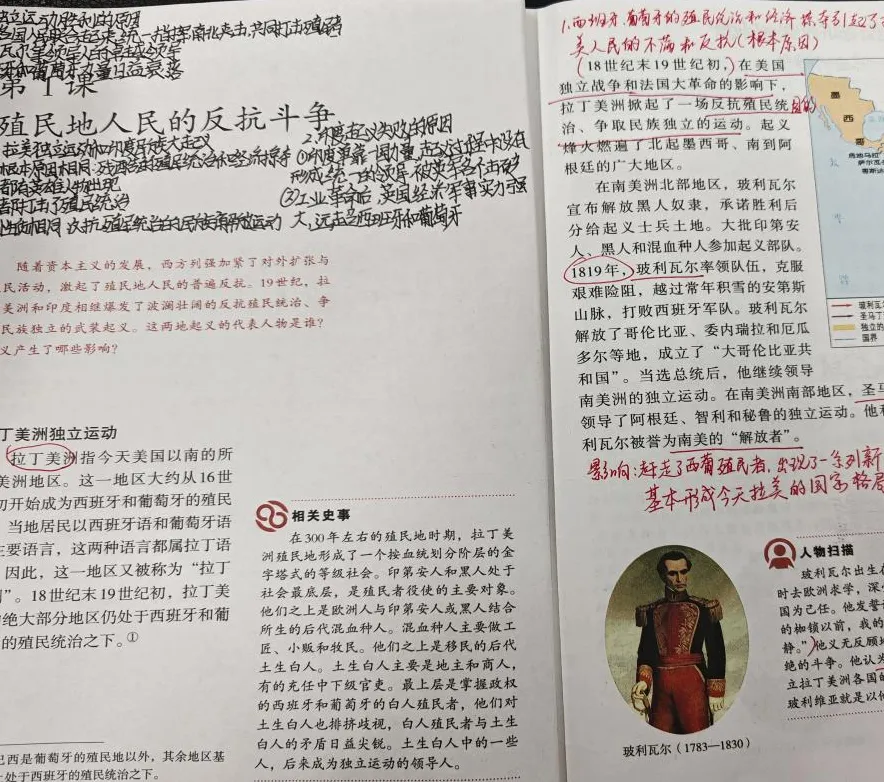 各国人民联合起来,统一指挥,南北夹击,共同打击殖民者
第1课
殖民地人民的反抗斗争
拉美独立运动和印度民族大起义
根本原因相同:
都有英雄人物出现
都打击了殖民统治
性质相同:反抗殖民统治的民族解放运动
2.印度起义失败的原因
①印度单靠一国力量,起义过程中没有
形成统一的领导,被英军各个击破
②工业革命后,英国经济军事实力强
大,远在西班牙和葡萄牙
随着资本主义的发展,西方列强加紧了对外扩张与
民活动,激起了殖民地人民的普遍反抗。19世纪,拉
美洲和印度相继爆发了波澜壮阔的反抗殖民统治、争
民族独立的武装起义。这两地起义的代表人物是谁?
义产生了哪些影响?
丁美洲独立运动
拉丁美洲指今天美国以南的所
美洲地区。这一地区大约从16世
初开始成为西班牙和葡萄牙的殖民
当地居民以西班牙语和葡萄牙语
主要语言,这两种语言都属拉丁语
因此,这一地区又被称为“拉丁
”。18世纪末19世纪初,拉丁美
绝大部分地区仍处于西班牙和葡
的殖民统治之下。①
巴西是葡萄牙的殖民地以外,其余地区基
处于西班牙的殖民统治之下。
相关史事
在300年左右的殖民地时期,拉丁美
洲殖民地形成了一个按血统划分阶层的金
字塔式的等级社会。印第安人和黑人处于
社会最底层,是殖民者役使的主要对象。
他们之上是欧洲人与印第安人或黑人结合
所生的后代混血种人。混血种人主要做工
匠、小贩和牧民。他们之上是移民的后代
土生白人。土生白人主要是地主和商人,
有的充任中下级官吏。最上层是掌握政权
的西班牙和葡萄牙的白人殖民者,他们对
土生白人也排挤歧视,白人殖民者与土生
白人的矛盾日益尖锐。土生白人中的一些
人,后来成为独立运动的领导人。
1.西班牙、葡萄牙的殖民统治和经济掠夺引起了
美人民的不满和反抗(根本原因)
(18世纪末19世纪初,)在美国
独立战争和法国大革命的影响下,
拉丁美洲掀起了一场反抗殖民统
治、争取民族独立的运动。起义
烽火燃遍了北起墨西哥、南到阿
根廷的广大地区。
在南美洲北部地区,玻利瓦尔
宣布解放黑人奴隶,承诺胜利后
分给起义士兵土地。大批印第安
人、黑人和混血种人参加起义部队。
1819年,玻利瓦尔率领队伍,克服
艰难险阻,越过常年积雪的安第斯
山脉,打败西班牙军队。玻利瓦尔
解放了哥伦比亚、委内瑞拉和厄瓜
多尔等地,成立了“大哥伦比亚共
和国”。当选总统后,他继续领导
南美洲的独立运动。在南美洲南部地区,圣马
领导了阿根廷、智利和秘鲁的独立运动。他和
利瓦尔被誉为南美的“解放者”。
影响:赶走了西葡殖民者,出现了一系列新
基本形成今天拉美的国家格局
墨
西
哥
危地马拉
萨尔瓦
玻利瓦
圣马丁
独立的
国界
玻利瓦尔(1783—1830)
人物扫描
玻利瓦尔出生在
时去欧洲求学,深
国为己任。他发誓
的枷锁以前,我的
静。”他义无反顾
绝的斗争。他认为
立拉丁美洲各国的
玻利维亚就是以他